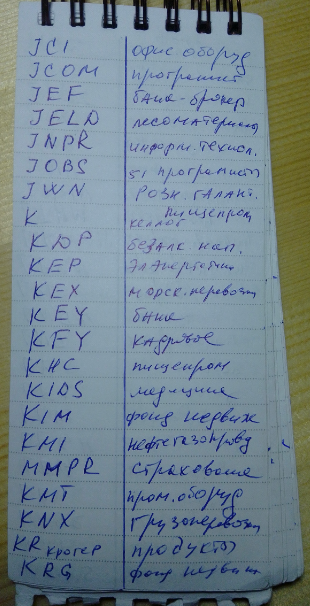 JCI офис оборуд
JCOM програмист
JEF банк-брокер
JELD лесоматериалы
JNPR информ. технол.
JOBS 51 програмисты
JWN розн. галант.
K пищепром келлог
KDP безалк. нап.
KEP эл энергетика
KEX морск. перевозки
KEY банк
KFY кадровое
KHC пищепром
KIDS медицина
KIM фонд недвиж
KMI нефтегазопровод
MMPR страхование
KMT пром. оборуд
KNX грузоперевозки
KR крогер продукты
KRG фонд недвиж